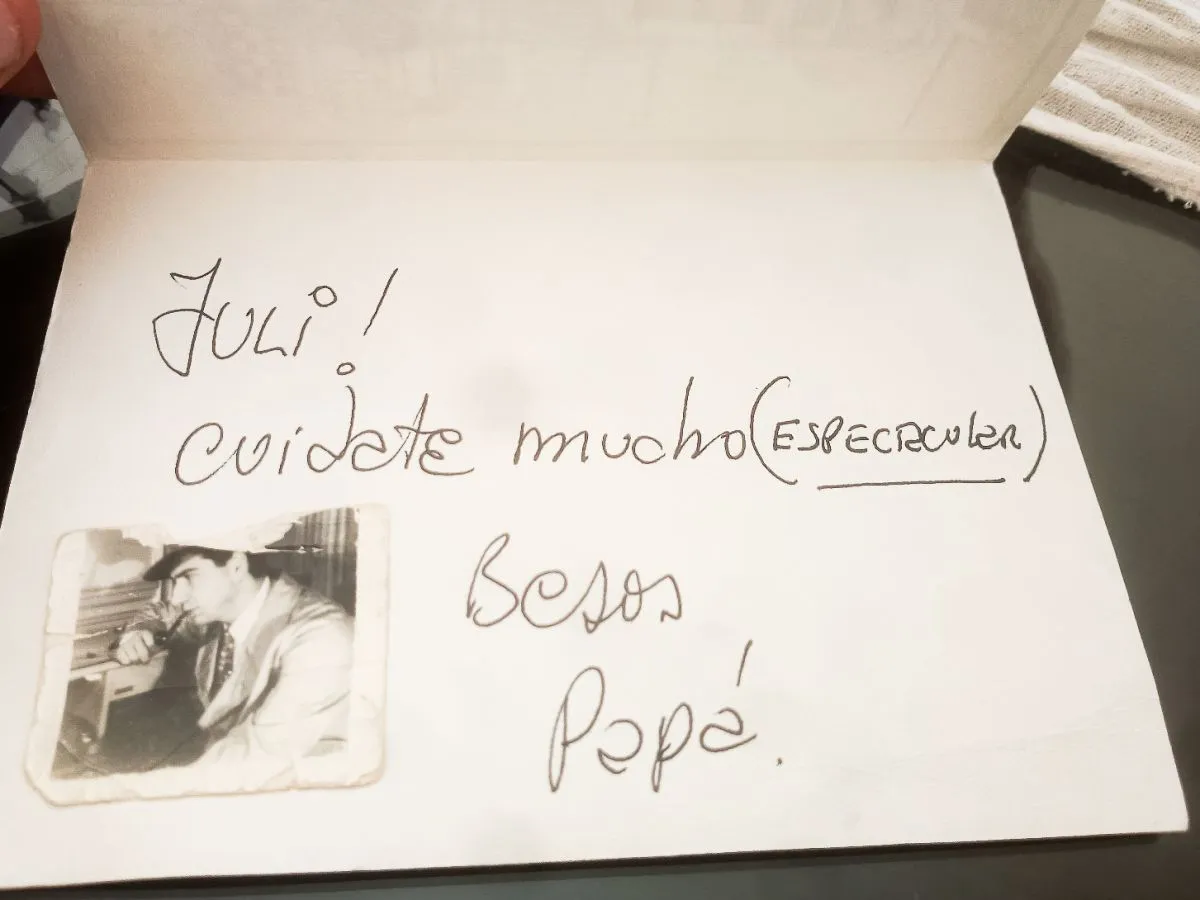 Juli!
cuidate mucho (ESPECTACULAR)
Besos
Papá.